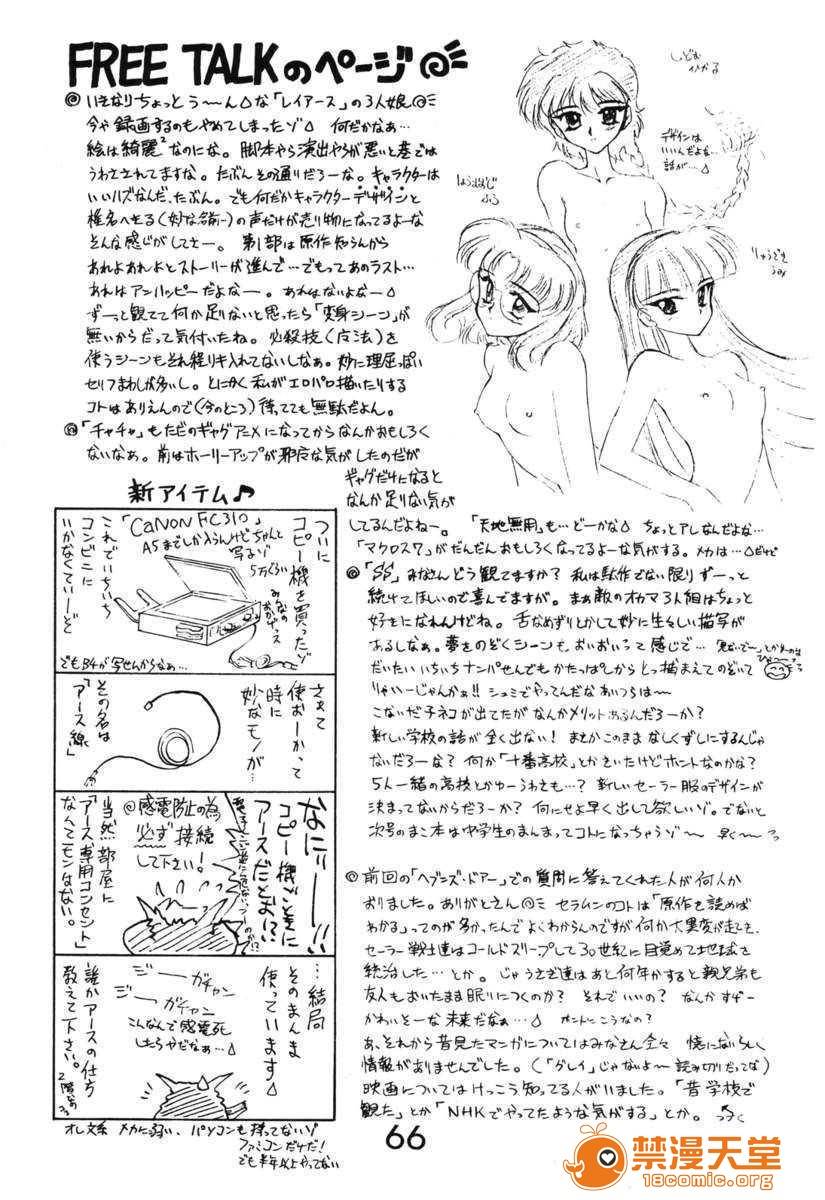 FREE TALKのページ
いきなりちょっとう〜〜んな「レイアース」の3人娘
今や録画するのもやめてしまったゾ 何だかなぁ…
絵は綺麗なのにな。脚本やら演出やらが悪いと巷では
うわさされてますな。たぶんその通りだろーな。キャラクターは
いいハズなんだ、たぶん。でも何だかキャラクターデザインと
椎名へきる(妙な名前ー)の声だけが売り物になってるよーな
そんな感じがしてさー。第1部は原作知らんから
あれよあれよとストーリーが進んで…でもってあのラスト…
あれはアンハッピーだよなー。あれはないよなー
ずーっと観てて何か足りないと思ったら「変身シーン」が
無いからだって気付いたね。必殺技(魔法)を
使うシーンもそれ程リキ入れてないしなぁ。妙に理屈っぽい
セリフまわしが多いし。とにかく私がエロパロ描いたりする
コトはありえんので(今のところ)待ってても無駄だよん。
「チャチャ」もただのギャグアニメになってからなんかおもしろく
ないなぁ。前はホーリーアップが邪魔な気がしたのだが
ギャグだけになると
なんか足りない気が
してるんだよねー。「天地無用」も…どーかな ちょっとアレなんだよな…
「マクロス7」がだんだんおもしろくなってるよーな気がする。メカは…だけど
しどう
ひかる
デザインは
いいんだよな…
話が…
ほうおうじ
ふう
りゅうざき
うみ
「SS」みなさんどう観てますか? 私は駄作でない限りずーっと
続けてほしいので喜んでますが。まぁ敵のオカマ3人組はちょっと
好きになれんけどね。舌なめずりとかして妙に生々しい描写が
あるしなぁ。夢をのぞくシーンも、おいおいって感じで…
だいたいいちいちナンパせんでもかたっぱしからとっ捕まえてのぞいて
りゃいーじゃんかぁ!! シュミでやってんだなあいつらは〜
こないだ子ネコが出てたがなんかメリットあるんだろーか?
新しい学校の話が全く出ない! まさかこのままなしくずしにするんじゃ
ないだろーな? 何か「十番高校」とかきいたけどホントなのかな?
5人一緒の高校とかゆーうわさも…? 新しいセーラー服のデザインが
決まってないからだろーか? 何にせよ早く出して欲しいゾ。でないと
次号のまこ本は中学生のまんまってコトになっちゃうゾ〜 早く〜
前回の「ヘブンズ・ドアー」での質問に答えてくれた人が何人か
おりました。ありがとさん セラムンのコトは「原作を読めば
わかる」ってのが多かったんでよくわからんのですが何か大異変が起きて、
セーラー戦士達はコールドスリープして30世紀に目覚めて地球を
統治した…とか。じゃうさぎ達はあと何年かすると親兄弟も
友人もおいたまま眠りにつくのか? それでいいの? なんかすげー
かわいそーな未来だなぁ… ホントにこうなの?
あ、それから昔見たマンガについてはみなさん全々
情報がありませんでした。(「グレイ」じゃないよ〜読み切りだってな)
映画についてはけっこう知ってる人がいました。「昔学校で
観た」とか「NHKでやってたような気がする」とか。
新アイテム♪
ついに
コピー機を買ったゾ
「CANON FC310」
A5までしか入らんけどちゃんと
写るゾ
5万くらい
みんなの
おかげっス
これでいちいち
コンビニに
いかなくていーゾ
でもB4が写せんからなぁ…
さぁて
使おーかって
時に
妙なモノが…
その名は
「アース線」
なにぃーー!!
コピー機ごときに
アースだとぉ!?
@感電防止の為
必ず接続
して下さい!
当然部屋に
「アース専用コンセント」
なんてモンはない。
…結局
そのまんま
使っています
ジーーガチャン
ジーーガチャン
こんなんで感電死
したらやだなぁ…
誰かアースの仕方
教えて下さい。
2階なの
オレ文系 メカに弱い、パソコンも持ってないゾ
ファミコンだけだ!
でも半年以上やってない
66
禁漫天堂
18comic.org